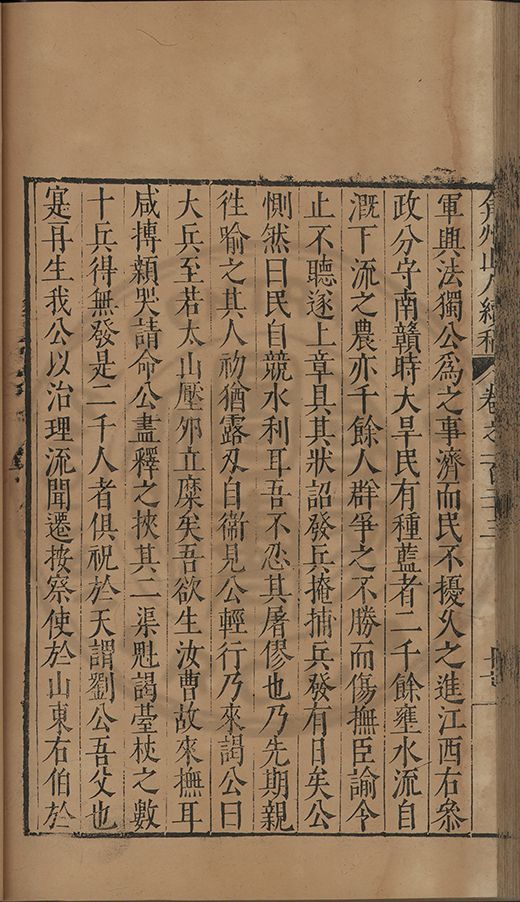 弇州山人續稿 卷之一百二十三
軍興法獨公爲之事濟而民不擾久之進江西右參
政分守南贛時大旱民有種藍者二千餘壅水流自
溉下流之農亦千餘人群爭之不勝而傷撫臣諭令
止不聽遂上章具其狀詔發兵掩捕兵發有日矣公
惻然曰民自競水利耳吾不忍其屠僇也乃先期親
徃喻之其人初猶露刄自衞見公輕行乃來謁公曰
大兵至若太山壓夘立糜矣吾欲生汝曹故來撫耳
咸摶顙哭請命公盡釋之挾其二渠魁謁臺杖之數
十兵得無發是二千人者俱祝於天謂劉公吾父也
寔再生我公以治理流聞遷按察使於山東右伯於